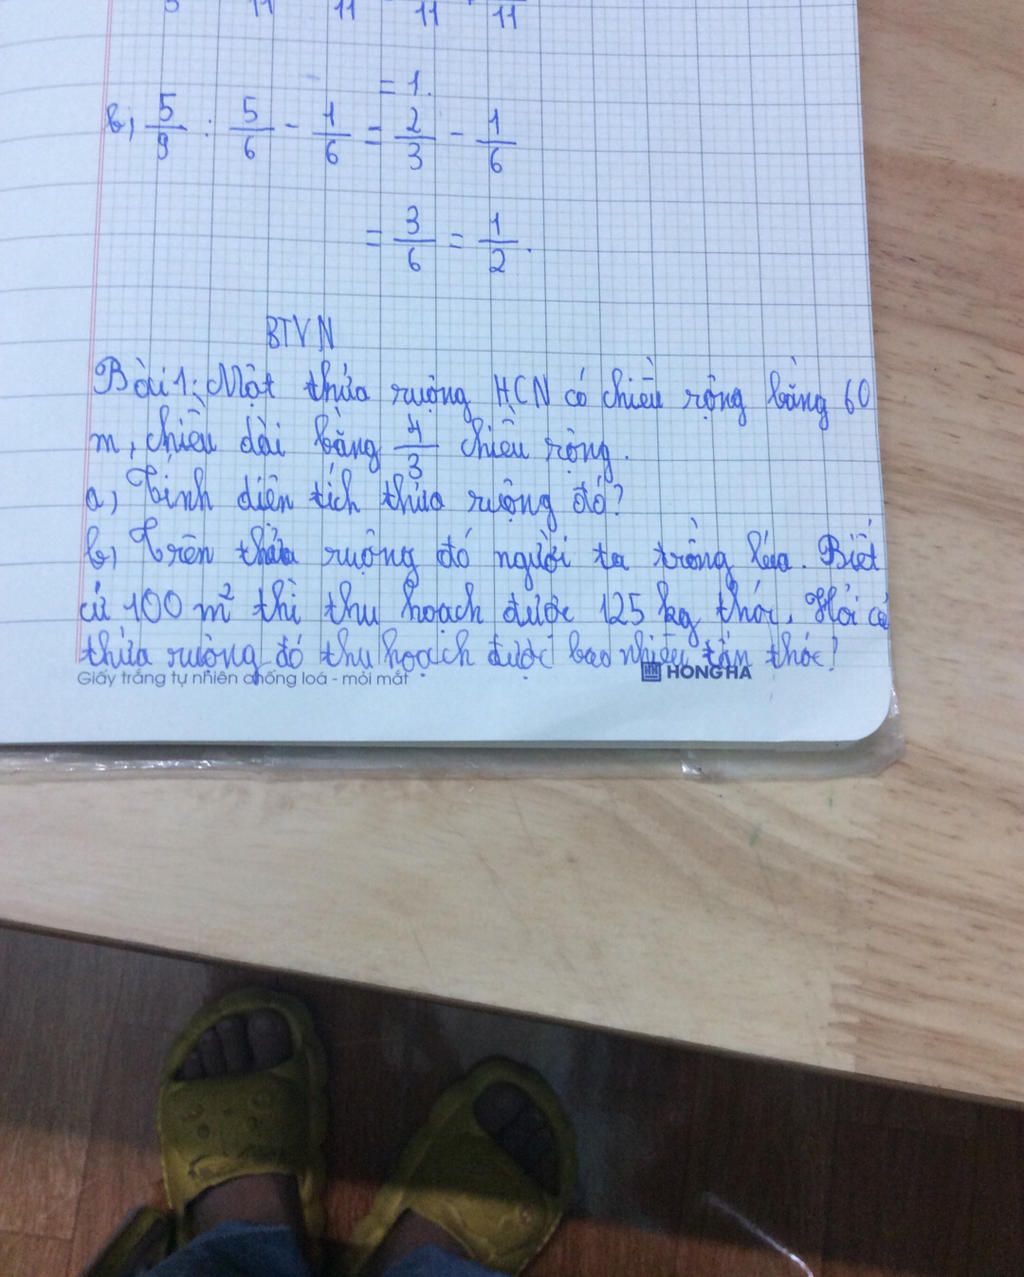 11 11 11 11
= 1.
b, 5/9 : 5/6 - 1/6 = 2/3 - 1/6
= 3/6 = 1/2.
BTVN
Bài 1: Một thửa ruộng HCN có chiều rộng bằng 60
m, chiều dài bằng 4/3 chiều rộng.
a, Tính diện tích thửa ruộng đó?
b, Trên thửa ruộng đó người ta trồng lúa. Biết
cứ 100 m² thì thu hoạch được 125 kg thóc. Hỏi cả
thửa ruộng đó thu hoạch được bao nhiêu tấn thóc?
Giấy trắng tự nhiên chống loá - mỏi mắt HONG HA